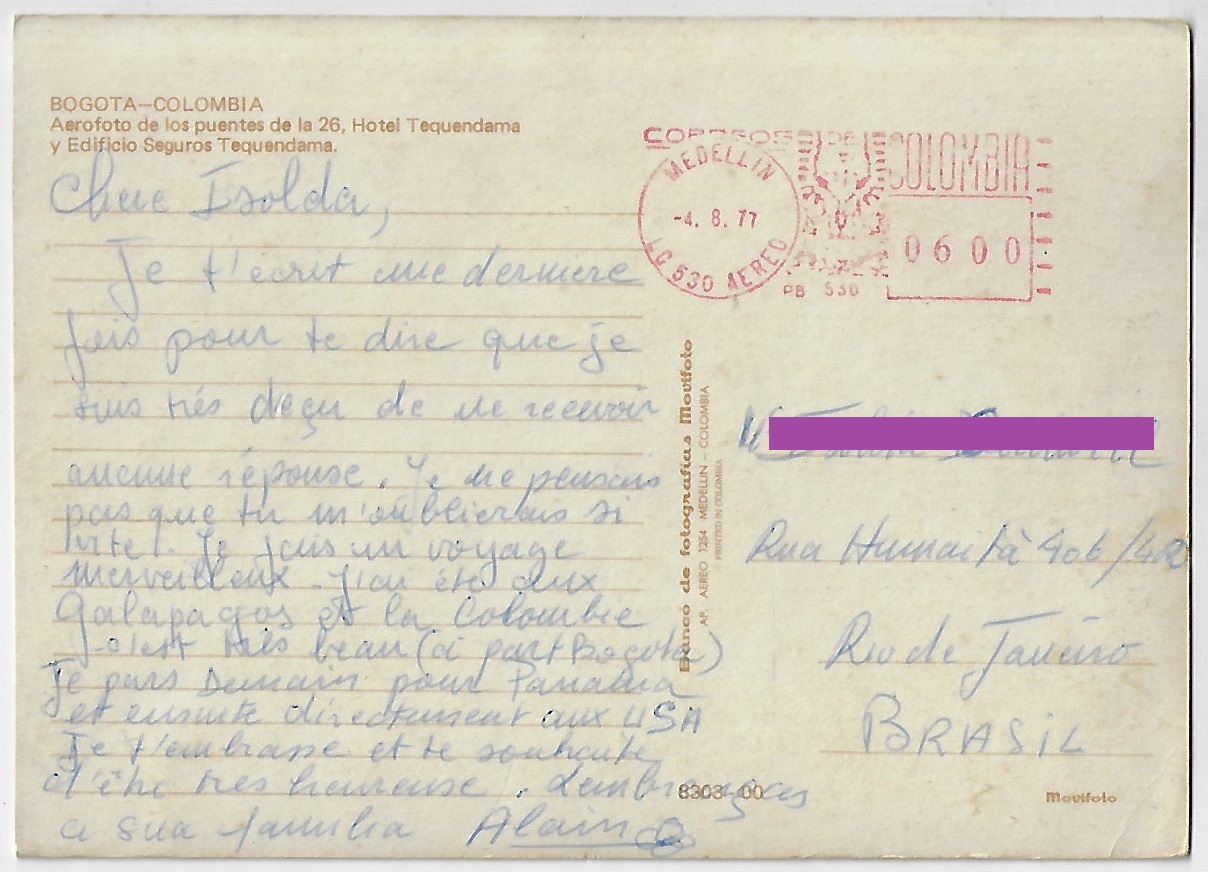 BOGOTA—COLOMBIA
Aerofoto de los puentes de la 26, Hotel Tequendama
y Edificio Seguros Tequendama.
Chere Isolda,
Je t'écrit une derniere
fois pour te dire que je
suis trés deçu de ne recevoir
aucune réponse. Je ne pensais
pas que tu m'oublierais si
vite. Je fais un voyage
merveilleux. J'ai été aux
Galapagos et la Colombie
c'est très beau (à part Bogota)
Je pars Demain pour Panama
et ensuite directement aux USA
Je t'embrasse et te souhaite
d'être très heureuse. Lembranças
a sua familia Alain
CORREOS DE COLOMBIA
MEDELLIN
-4. 8. 77
LC 530 AEREO
PB 530
0600
Banco de fotografías Movifoto
AP. AEREO 1254 MEDELLIN – COLOMBIA
PRINTED IN COLOMBIA
Rua Humaità 406/
Rio de Janeiro
BRASIL
8303 00
Movifoto